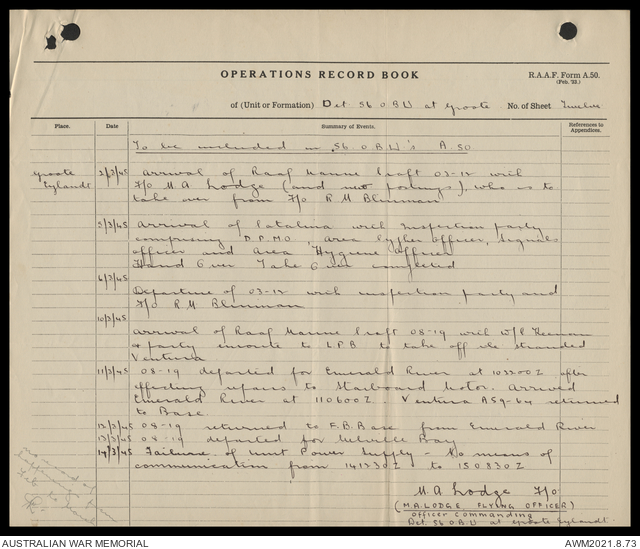 OPERATIONS RECORD BOOK
R.A.A.F. Form A.50.
(Feb. '23.)
of (Unit or Formation) Det 56 O.B.U at Groote No. of Sheet Twelve
Place. Date Summary of Events. References to Appendices.
To be included in 56 O.B.U's A.50
Groote Eylandt 2/3/45 Arrival of Raaf Marine Craft 03-12 with
F/O M A Lodge (and two postings), who is to
take over from F/O R M Blinman
5/3/45 Arrival of Catalina with Inspection party
comprising D.P.M.O, Area Cypher officer, Signals
officer and Area Hygiene Officer
Hand Over Take Over completed
6/3/45
Departure of 03-12 with inspection party and
F/O R M Blinman
10/3/45
Arrival of Raaf Marine Craft 08-19 with
& party enroute to L.P.B to take off the stranded
Ventura
11/3/45 08-19 departed for Emerald River at 103200Z after
effecting repairs to Starboard Motor. Arrived
Emerald River at 110600Z. Ventura A59-64 returned
to Base.
12/3/45 08-19 returned to F.B. Base from Emerald River
13/3/45 08-19 departed for Melville Bay
14/3/45 Failure of Unit Power Supply - No means of
communication from 141230Z to 150830Z
M. A Lodge F/O
(M.A. LODGE FLYING OFFICER)
Officer Commanding
Det. 56 O.B.U at Groote Eylandt.
AUSTRALIAN WAR MEMORIAL
AWM2021.8.73